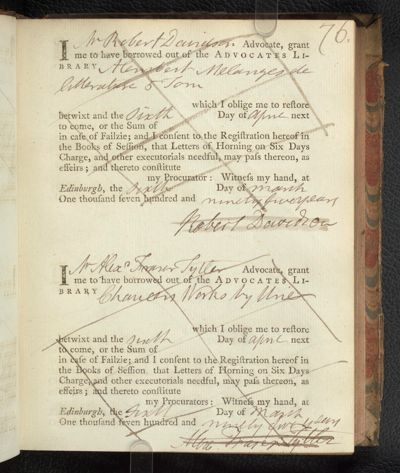 76.
I Mr Robert Davidson Advocate, grant
me to have borrowed out of the ADVOCATES LI-
BRARY Alembert Melanges de
litterature 5 Tom
which I oblige me to restore
betwixt and the sixth Day of april next
to come, or the Sum of
in case of Failzie; and I consent to the Registration hereof in
the Books of Session, that Letters of Horning on Six Days
Charge, and other executorials needful, may pass thereon, as
effeirs; and thereto constitute
my Procurator: Witness my hand, at
Edinburgh, the sixth Day of march
One thousand seven hundred and ninety five years
Robert Davidson
I Mr Alexr Fraser Tytler Advocate, grant
me to have borrowed out of the ADVOCATES LI-
BRARY Chaucers Works by Urie
which I oblige me to restore
betwixt and the sixth Day of april next
to come, or the Sum of
in case of Failzie; and I consent to the Registration hereof in
the Books of Session that Letters of Horning on Six Days
Charge, and other executorials needful, may pass thereon, as
effeirs; and thereto constitute
my Procurators: Witness my hand, at
Edinburgh, the sixth Day of March
One thousand seven hundred and ninety five years
Alexr Fraser Tytler